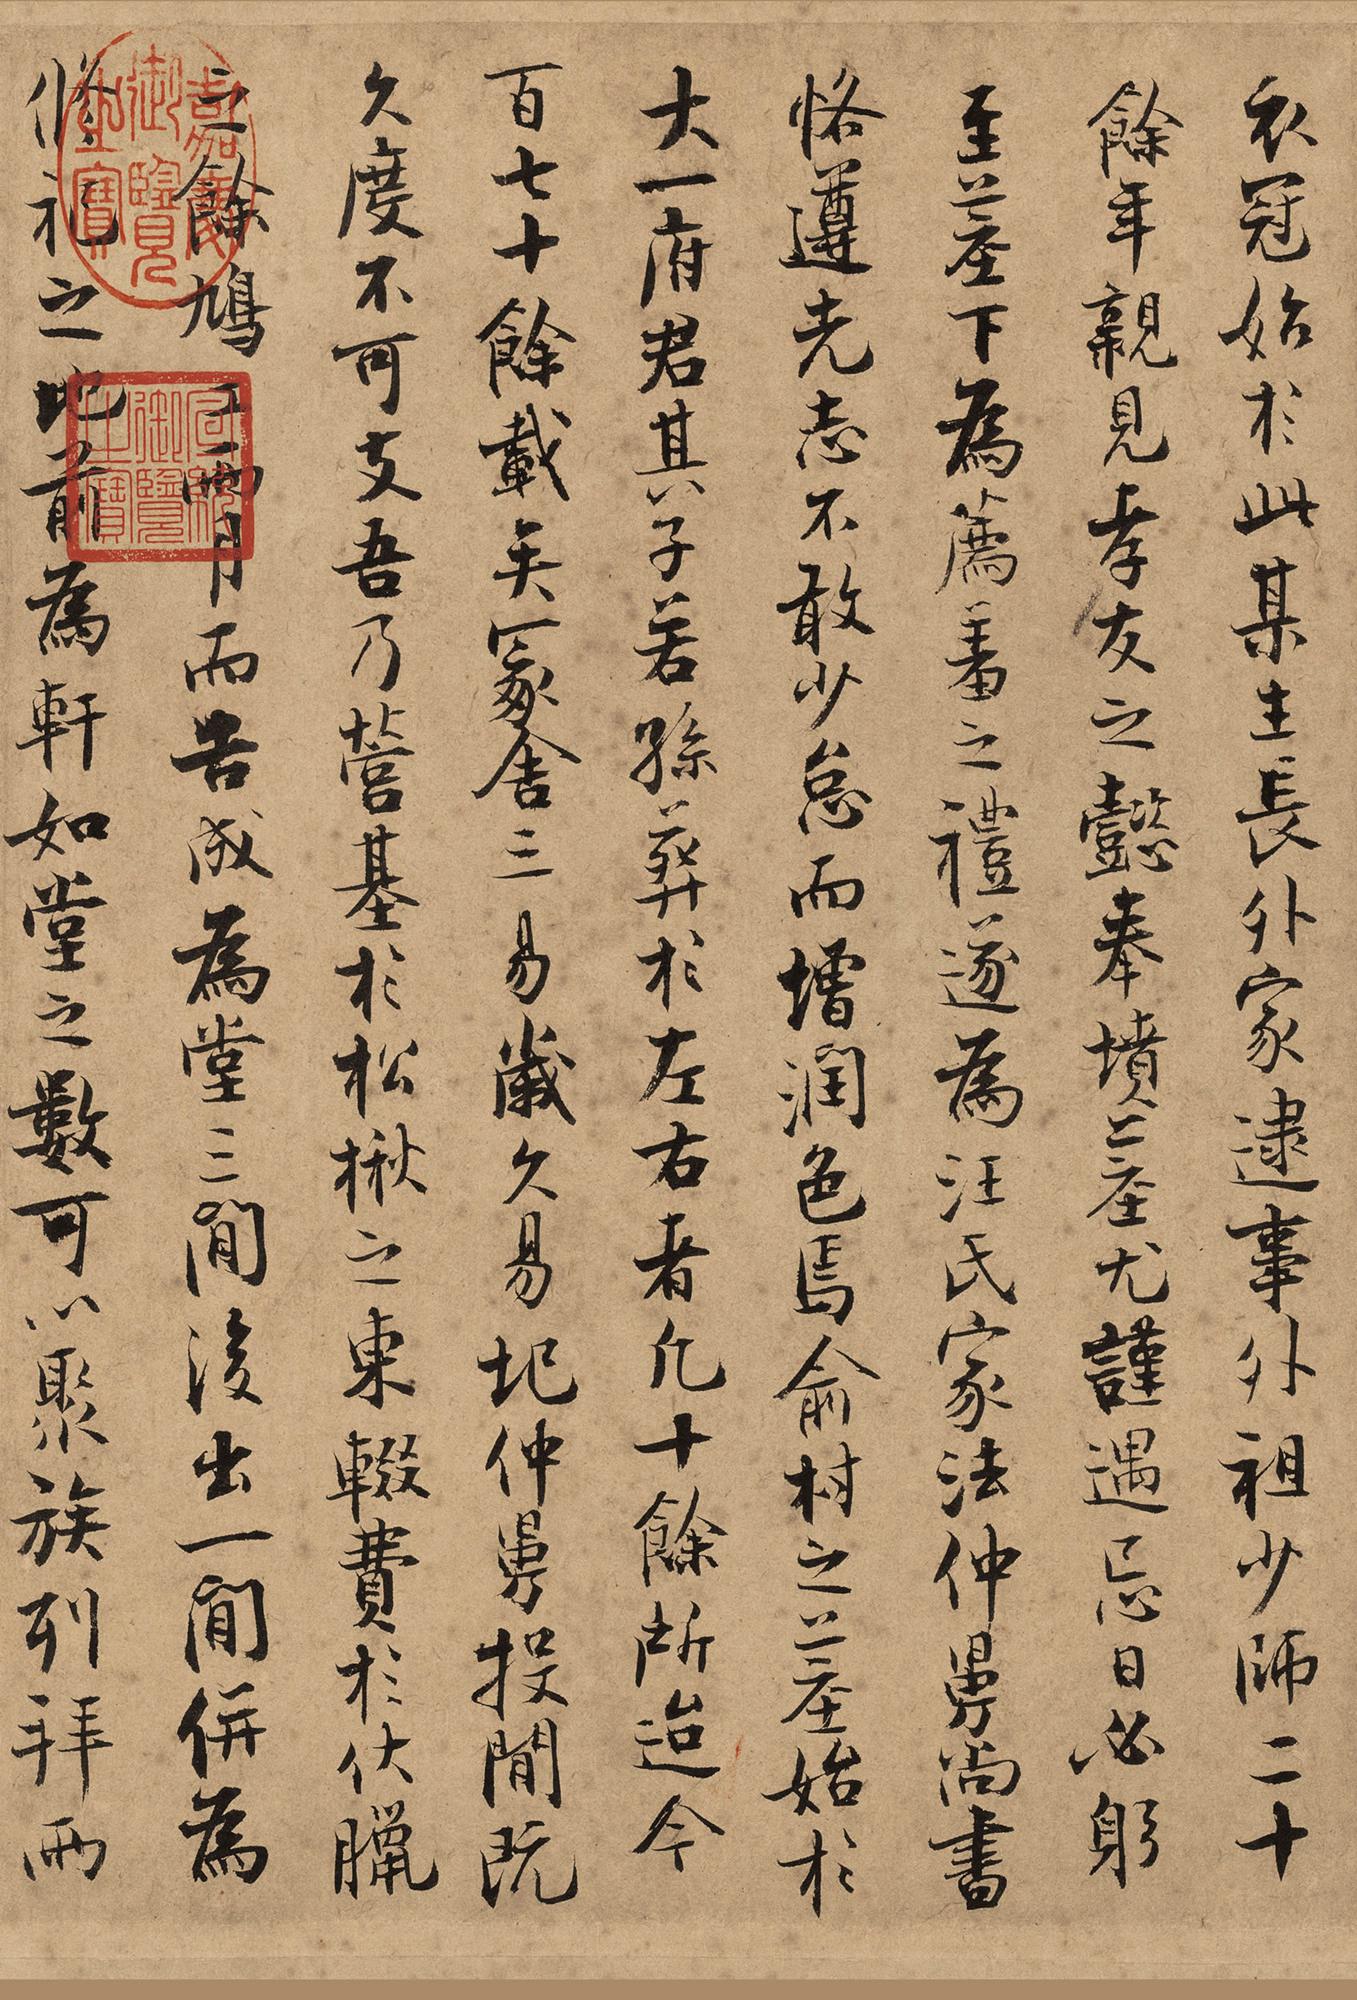 衣冠始於此某生長外家逮事外祖少師二十
餘年親見孝友之懿奉墳墓尤謹遇忌日必躬
至墓下為薦羞之禮遂為汪氏家法仲舅尚書
恪遵先志不敢少怠而增潤色焉俞村之墓始於
大一府君其子若孫葬於左右者凡十餘所迨今
百七十餘載矣冢舍三易歲久易圮仲舅投閒既
久度不可支吾乃營基於松楸之東輟費於伏臘
之餘鳩工兩月而告成為堂三間後出一間併為
脩祀之地前為軒如堂之數可以聚族列拜兩
嘉慶御覽之寶
宣統御覽之寶